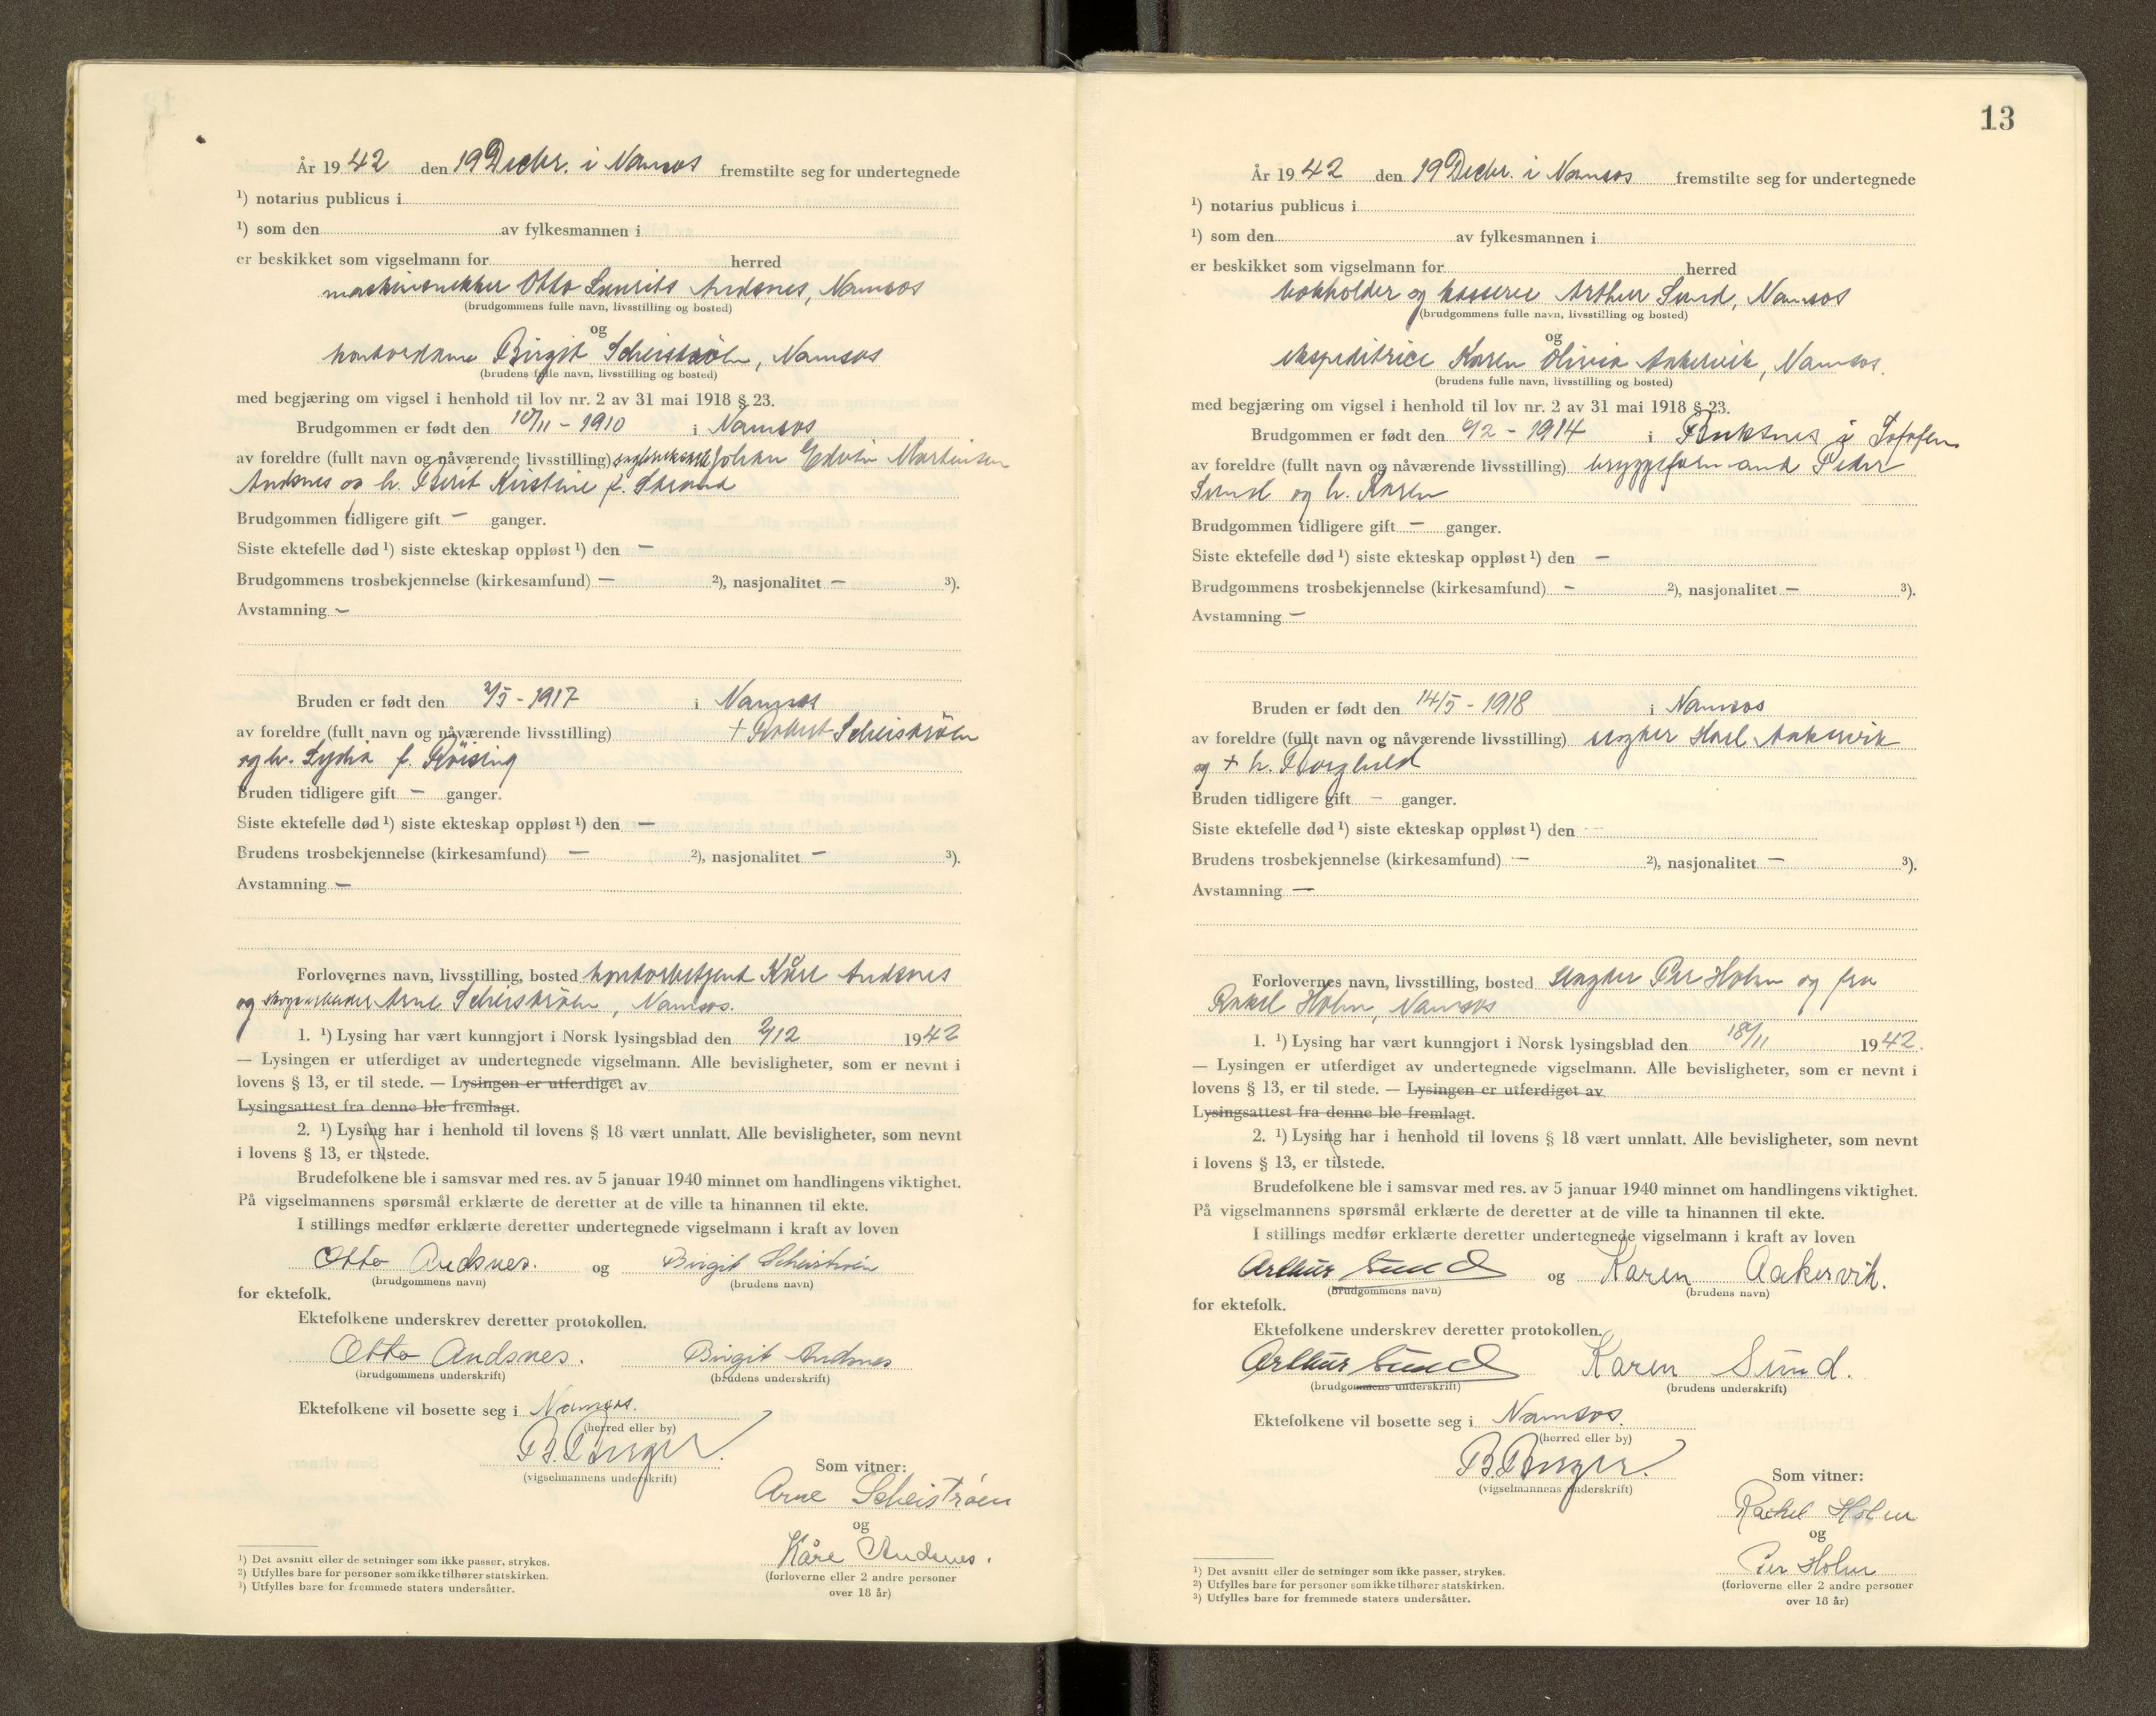 År 19 42 den 19 Decbr. i Namsos fremstilte seg for undertegnede
¹) notarius publicus i
¹) som den av fylkesmannen i
er beskikket som vigselmann for herred
maskinsnekker Otto Laurits Andsnes, Namsos
(brudgommens fulle navn, livsstilling og bosted)
og
kontordame Birgit Scheistrøen, Namsos
(brudens fulle navn, livsstilling og bosted)
med begjæring om vigsel i henhold til lov nr. 2 av 31 mai 1918 § 23.
Brudgommen er født den 10/11 - 1910 i Namsos
av foreldre (fullt navn og nåværende livsstilling) Johan Edvin Martinsen
Andsnes og h. Berit Kirstine f. Strand
Brudgommen tidligere gift – ganger.
Siste ektefelle død ¹) siste ekteskap oppløst ¹) den –
Brudgommens trosbekjennelse (kirkesamfund) – ²), nasjonalitet – ³).
Avstamning –
Bruden er født den 2/5 - 1917 i Namsos
av foreldre (fullt navn og nåværende livsstilling) + Robert Scheistrøen
og h. Lydia f. Røising
Bruden tidligere gift – ganger.
Siste ektefelle død ¹) siste ekteskap oppløst ¹) den –
Brudens trosbekjennelse (kirkesamfund) – ²), nasjonalitet – ³).
Avstamning –
Forlovernes navn, livsstilling, bosted kontorbetjent Kåre Andsnes
og skogsarbeider Arne Scheistrøen, Namsos.
1. ¹) Lysing har vært kunngjort i Norsk lysingsblad den 2/12 1942
— Lysingen er utferdiget av undertegnede vigselmann. Alle bevisligheter, som er nevnt i
lovens § 13, er til stede. — Lysingen er utferdiget av
Lysingsattest fra denne ble fremlagt.
2. ¹) Lysing har i henhold til lovens § 18 vært unnlatt. Alle bevisligheter, som nevnt
i lovens § 13, er tilstede.
Brudefolkene ble i samsvar med res. av 5 januar 1940 minnet om handlingens viktighet.
På vigselmannens spørsmål erklærte de deretter at de ville ta hinannen til ekte.
I stillings medfør erklærte deretter undertegnede vigselmann i kraft av loven
Otto Andsnes. og Birgit Scheistrøen
(brudgommens navn) (brudens navn)
for ektefolk.
Ektefolkene underskrev deretter protokollen.
Otto Andsnes. Birgit Andsnes
(brudgommens underskrift) (brudens underskrift)
Ektefolkene vil bosette seg i Namsos.
(herred eller by)
B. Burger.
(vigselmannens underskrift)
Som vitner:
Arne Scheistrøen
og
Kåre Andsnes.
(forloverne eller 2 andre personer
over 18 år)
¹) Det avsnitt eller de setninger som ikke passer, strykes.
²) Utfylles bare for personer som ikke tilhører statskirken.
³) Utfylles bare for fremmede staters undersåtter.
13
År 19 42 den 19 Decbr. i Namsos fremstilte seg for undertegnede
¹) notarius publicus i
¹) som den av fylkesmannen i
er beskikket som vigselmann for herred
bokholder og kasserer Arthur Sund, Namsos
(brudgommens fulle navn, livsstilling og bosted)
og
ekspeditrice Karen Olivia Aakervik, Namsos.
(brudens fulle navn, livsstilling og bosted)
med begjæring om vigsel i henhold til lov nr. 2 av 31 mai 1918 § 23.
Brudgommen er født den 6/2 - 1914 i Buksnes i Lofoten
av foreldre (fullt navn og nåværende livsstilling) bryggeformand Peder
Sund og h. Karen
Brudgommen tidligere gift – ganger.
Siste ektefelle død ¹) siste ekteskap oppløst ¹) den –
Brudgommens trosbekjennelse (kirkesamfund) – ²), nasjonalitet – ³).
Avstamning –
Bruden er født den 14/5 - 1918 i Namsos
av foreldre (fullt navn og nåværende livsstilling) Aakervik
og + h. Borghild
Bruden tidligere gift – ganger.
Siste ektefelle død ¹) siste ekteskap oppløst ¹) den –
Brudens trosbekjennelse (kirkesamfund) – ²), nasjonalitet – ³).
Avstamning –
Forlovernes navn, livsstilling, bosted Per Holm og fru
Rakel Holm, Namsos
1. ¹) Lysing har vært kunngjort i Norsk lysingsblad den 18/11 1942.
— Lysingen er utferdiget av undertegnede vigselmann. Alle bevisligheter, som er nevnt i
lovens § 13, er til stede. — Lysingen er utferdiget av
Lysingsattest fra denne ble fremlagt.
2. ¹) Lysing har i henhold til lovens § 18 vært unnlatt. Alle bevisligheter, som nevnt
i lovens § 13, er tilstede.
Brudefolkene ble i samsvar med res. av 5 januar 1940 minnet om handlingens viktighet.
På vigselmannens spørsmål erklærte de deretter at de ville ta hinannen til ekte.
I stillings medfør erklærte deretter undertegnede vigselmann i kraft av loven
Arthur Sund og Karen Aakervik.
(brudgommens navn) (brudens navn)
for ektefolk.
Ektefolkene underskrev deretter protokollen.
Arthur Sund Karen Sund.
(brudgommens underskrift) (brudens underskrift)
Ektefolkene vil bosette seg i Namsos.
(herred eller by)
B. Burger.
(vigselmannens underskrift)
Som vitner:
Rachel Holm
og
Per Holm
(forloverne eller 2 andre personer
over 18 år)
¹) Det avsnitt eller de setninger som ikke passer, strykes.
²) Utfylles bare for personer som ikke tilhører statskirken.
³) Utfylles bare for fremmede staters undersåtter.